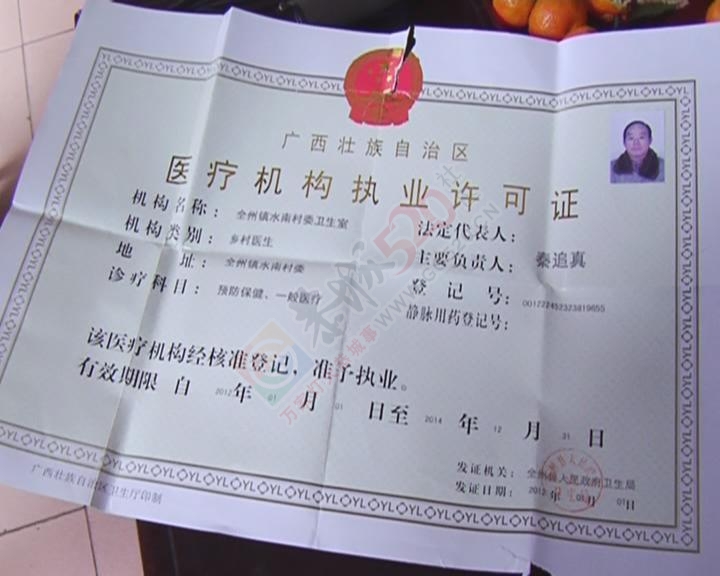 广西壮族自治区
医疗机构执业许可证
机构名称： 全州镇水南村委卫生室
机构类别： 乡村医生
地 址： 全州镇水南村委
诊疗科目： 预防保健、一般医疗
法定代表人：
主要负责人： 秦追真
登 记 号： 001222452323819655
静脉用药登记号：
该医疗机构经核准登记，准予执业。
有效期限 自 2012 年 01 月 01 日至 2014 年 12 月 31 日
发证机关： 全州县人民政府卫生局
发证日期： 2012 年 01 月 01 日
广西壮族自治区卫生厅印制